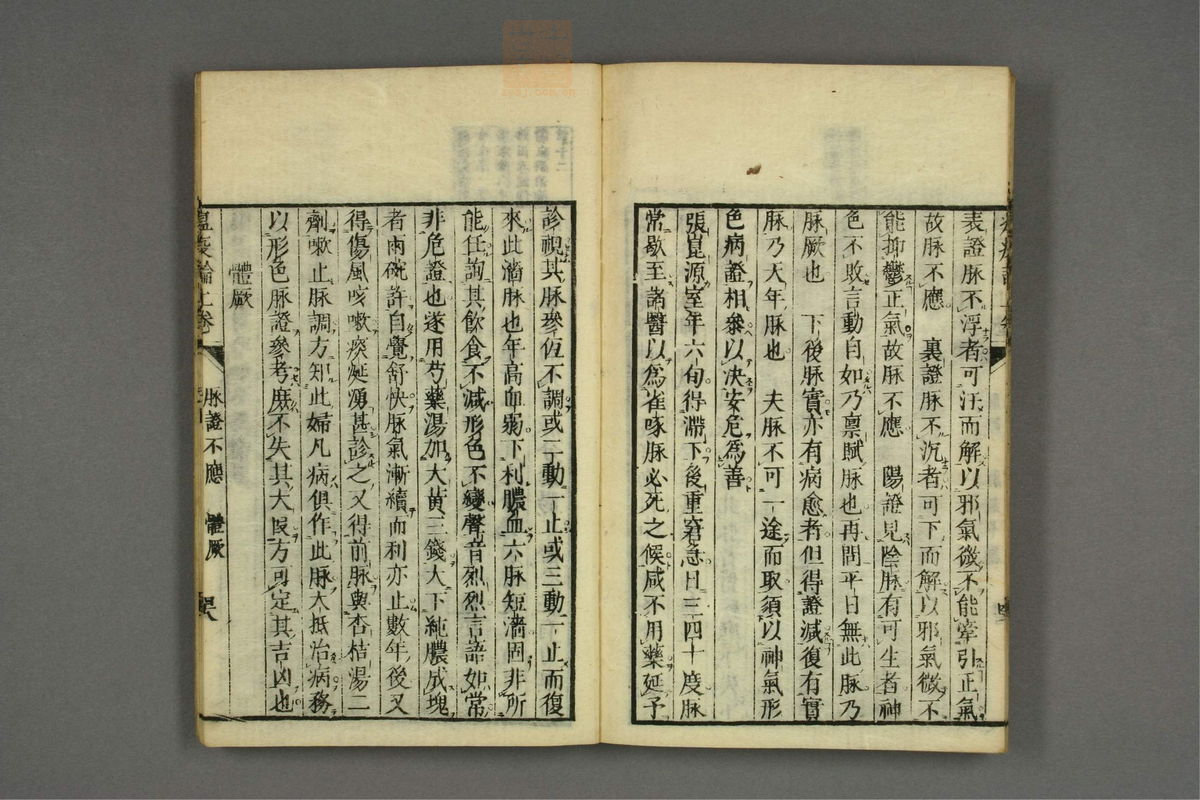 表證脉不浮者可汗而解以邪氣微不能牽引正氣
故脉不應　裏證脉不沉者可下而解以邪氣微不
能抑鬱正氣故脉不應　陽證見陰脉有可生者神
色不敗言動自如乃禀賦脉也再問平日無此脉乃
脉厥也　下後脉實亦有病愈者但得證減復有實
脉乃天年脉也　夫脉不可一途而取須以神氣形
色病證相參以决安危爲善
張崑源室年六旬得滯下後重窘急日三四十度脉
常歇至諸醫以爲雀啄脉必死之候咸不用藥延予
診視其脉參伍不調或二動一止或三動一止而復
來此濇脉也年高血弱下利膿血六脉短濇固非所
能任詢其飲食不減形色不變聲音烈烈言語如常
非危證也遂用芍藥湯加大黃三錢大下純膿成塊
者兩碗許自覺舒快脉氣漸續而利亦止數年後又
得傷風咳嗽痰涎湧甚診之又得前脉與杏桔湯二
劑嗽止脉調方知此婦凡病俱作此脉大抵治病務
以形色脉證參考庶不失其大段方可定其吉凶也
體厥
瘟疫論上卷
脉證不應　體厥